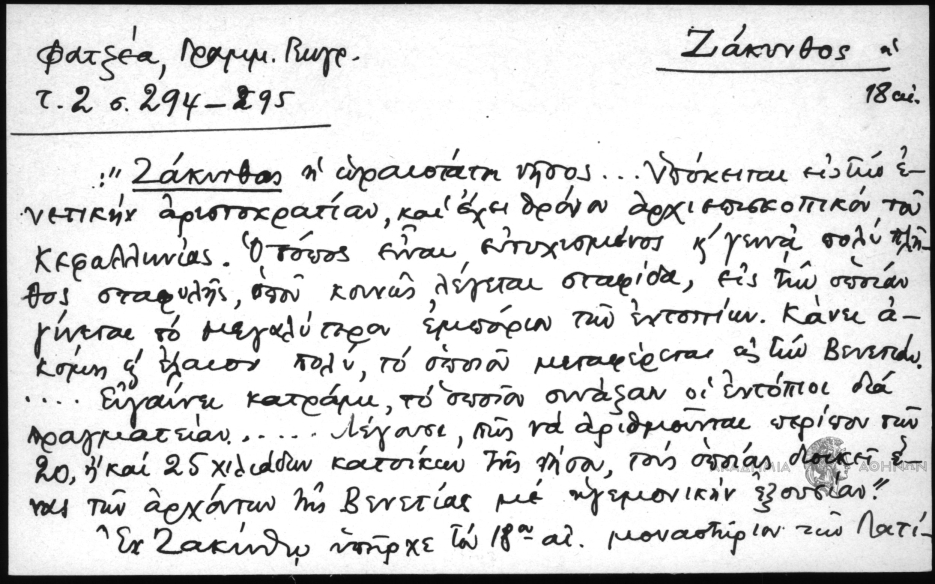 Φατζέα, Γραμμ. Γεωγρ.
Ζάκυνθος
τ. 2 σ. 294–295
18 αι.
:" Ζάκυνθος ἡ ὡραιοτάτη νῆσος ... Ὑπόκειται εἰς τὴν ἐ-
νετικὴν ἀριστοκρατίαν, καὶ ἔχει θρόνον ἀρχιεπισκοπικὸν τοῦ
Κεφαλληνίας. Ὁ τόπος εἶναι εὐτυχισμένος κ' γεννᾷ πολὺ πλῆ-
θος σταφυλῆς, ὁποῦ κοινῶς λέγεται σταφίδα, εἰς τὴν ὁποίαν
γίνεται τὸ μεγαλύτερον ἐμπόριον τῶν ἐντοπίων. Κάνει ἀ-
κόμη κ' ἔλαιον πολύ, τὸ ὁποῖον μεταφέρεται εἰς τὴν Βενετίαν.
.... Εὐγαίνει κατράμι, τὸ ὁποῖον συνάζαν οἱ ἐντόπιοι διὰ
πραγματείαν ..... Λέγουσι, πῶς νὰ ἀριθμοῦνται περίπου τῶν
20, ἢ καὶ 25 χιλιάδων κατοίκων τῆς νήσου, τοὺς ὁποίους διοικεῖ ἕ-
νας τῶν ἀρχόντων τῆς Βενετίας μὲ ἡγεμονικὴν ἐξουσίαν."
Ἐν Ζακύνθῳ ὑπῆρχε τὸν 18ον αἰ. μοναστήριον τῶν Λατί-
ΑΚΑΔΗΜΙΑ ΑΘΗΝΩΝ